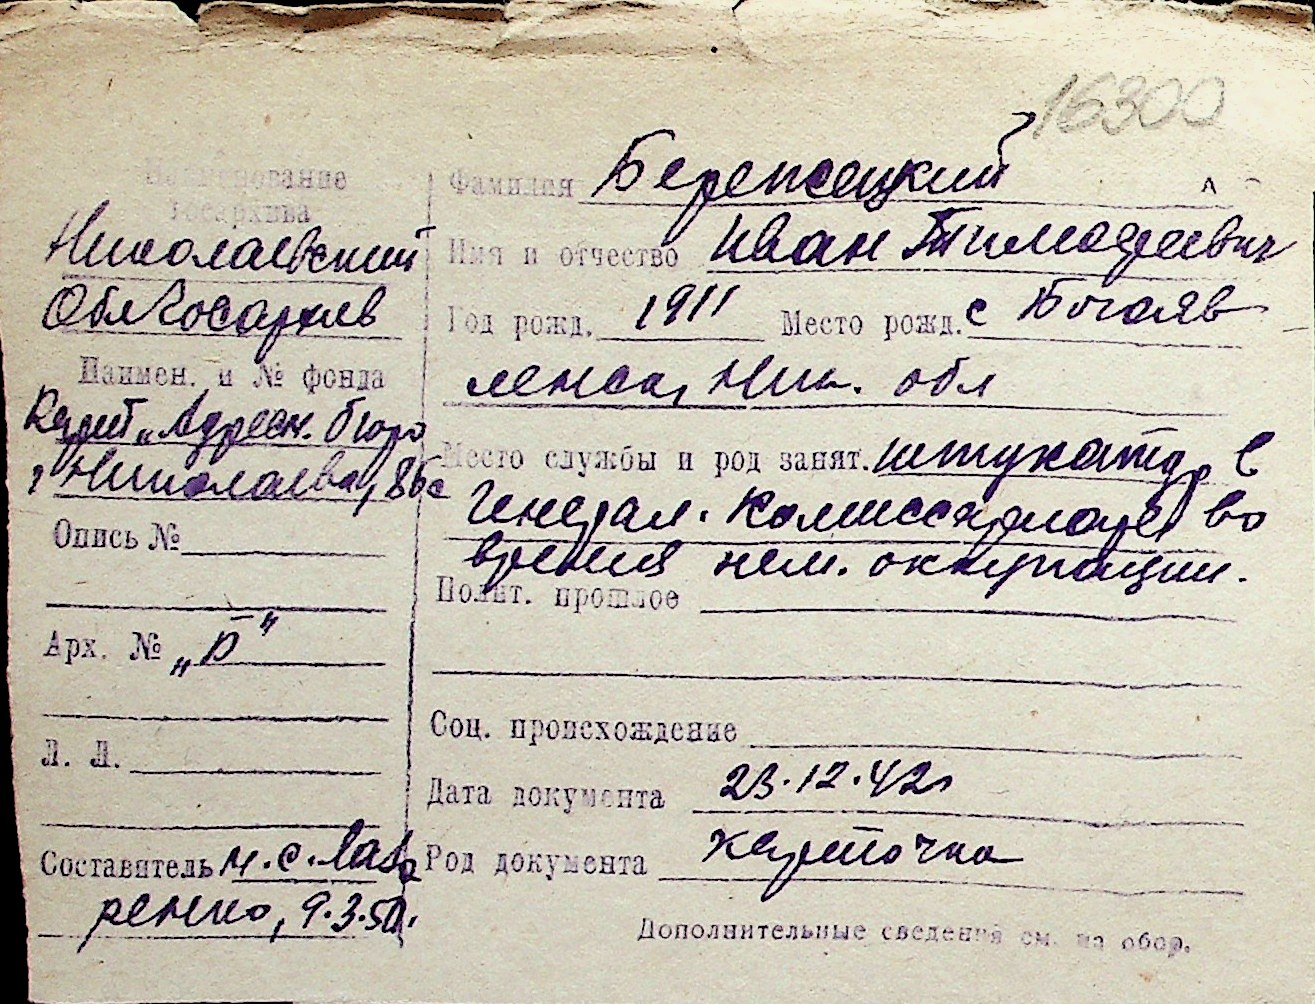 16300
Наименование
Госархива
Николаевский
Облгосархив
Наимен. и № фонда
Карт. „Адресн. бюро
г. Николаева,
Опись №
Арх. № „Б"
Л. Л.
Составитель М. С. Лав
ренко, 9.3.50.
Фамилия Бережецкий
Имя и отчество Иван Тимофеевич
Год рожд. 1911 Место рожд. с Богояв
ленск, Ник. обл
Место службы и род занят. штукатур в
Генерал. Комиссариате во
время нем. оккупации.
Полит. прошлое
Соц. происхождение
Дата документа 23.12.42г
Род документа карточка
Дополнительные сведения см. на обор.